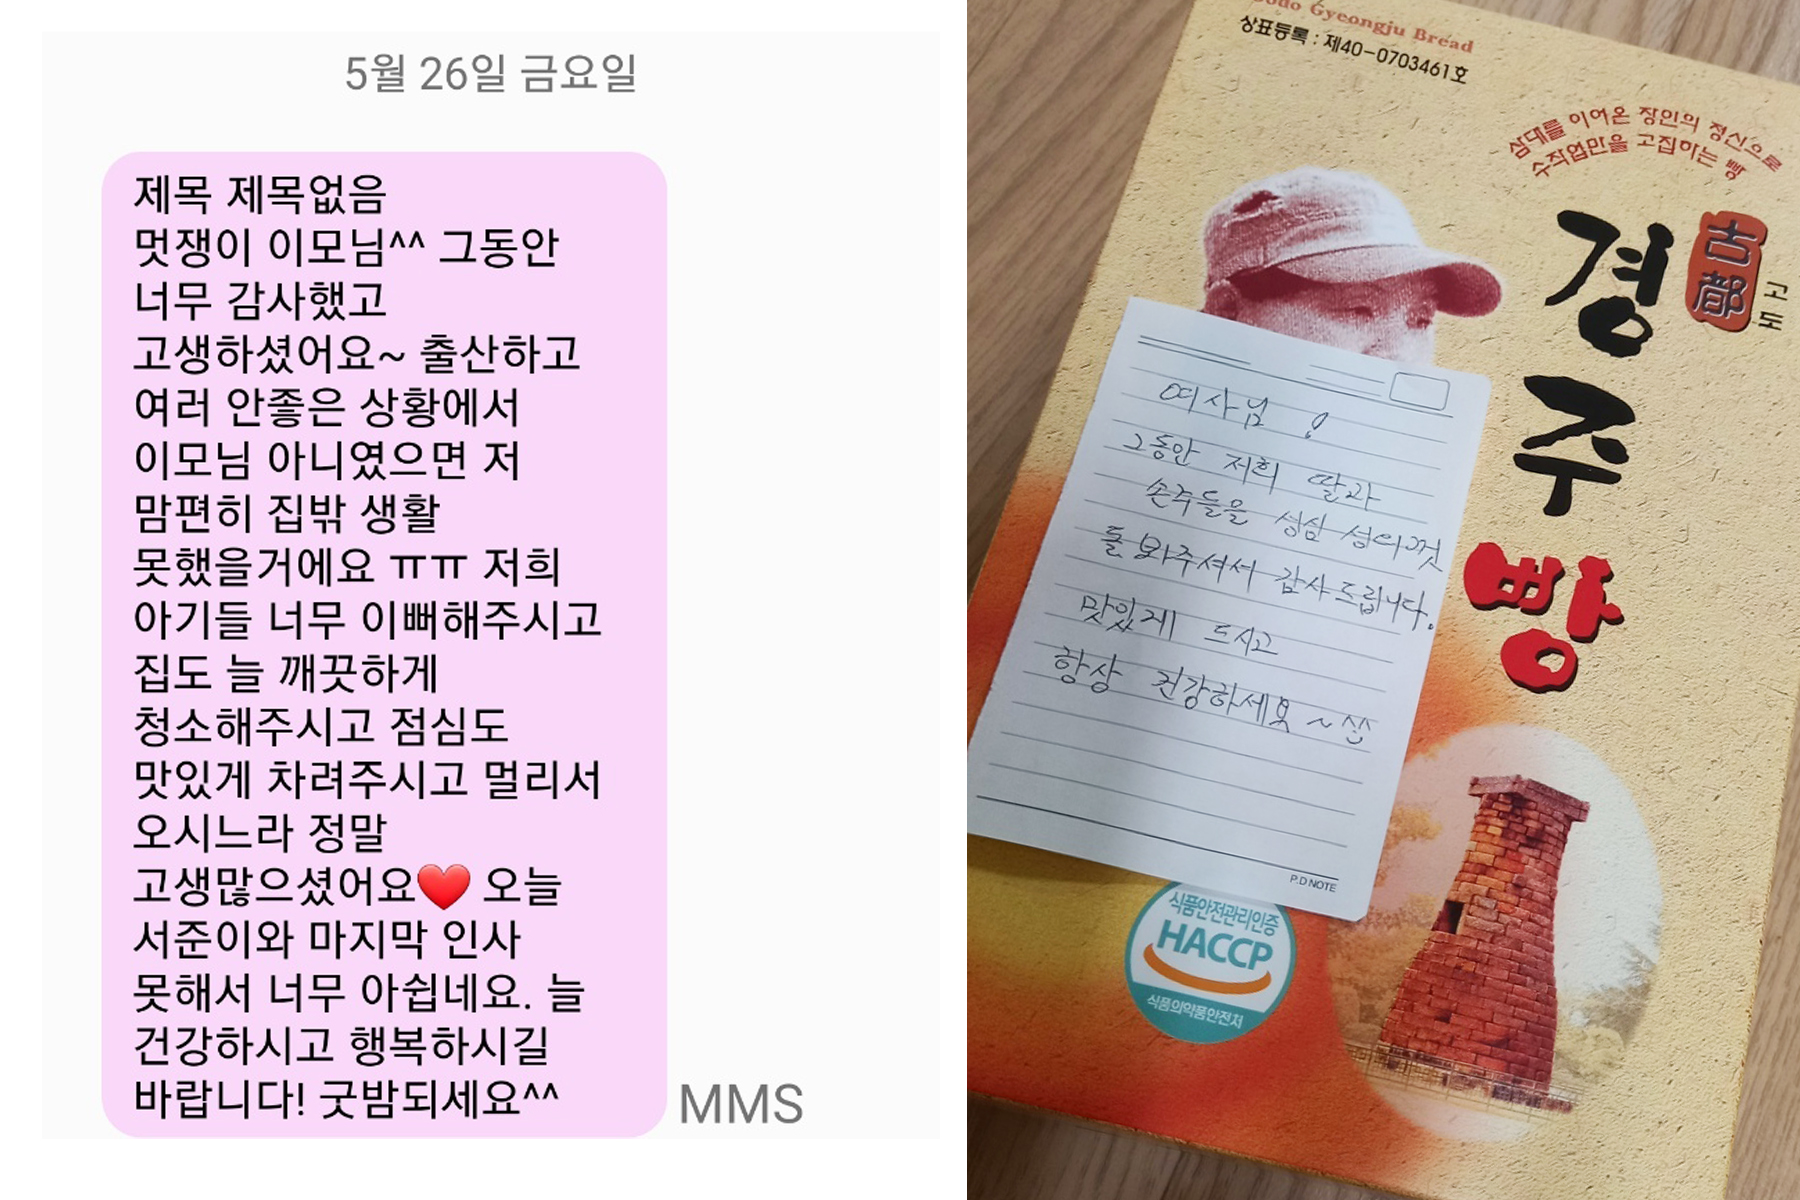 5월 26일 금요일
제목 제목없음
멋쟁이 이모님^^ 그동안
너무 감사했고
고생하셨어요~ 출산하고
여러 안좋은 상황에서
이모님 아니였으면 저
맘편히 집밖 생활
못했을거에요 ㅠㅠ 저희
아기들 너무 이뻐해주시고
집도 늘 깨끗하게
청소해주시고 점심도
맛있게 차려주시고 멀리서
오시느라 정말
고생많으셨어요❤️ 오늘
서준이와 마지막 인사
못해서 너무 아쉽네요. 늘
건강하시고 행복하시길
바랍니다! 굿밤되세요^^
MMS
Godo Gyeongju Bread
상표등록 : 제40-0703461호
삼대를 이어온 장인의 정신으로
수작업만을 고집하는 빵
古都
고도
경주빵
여사님!
그동안 저희 딸과
손주들을 성심 성의껏
돌봐주셔서 감사드립니다.
맛있게 드시고
항상 건강하세요~
P.D NOTE
식품안전관리인증
HACCP
식품의약품안전처